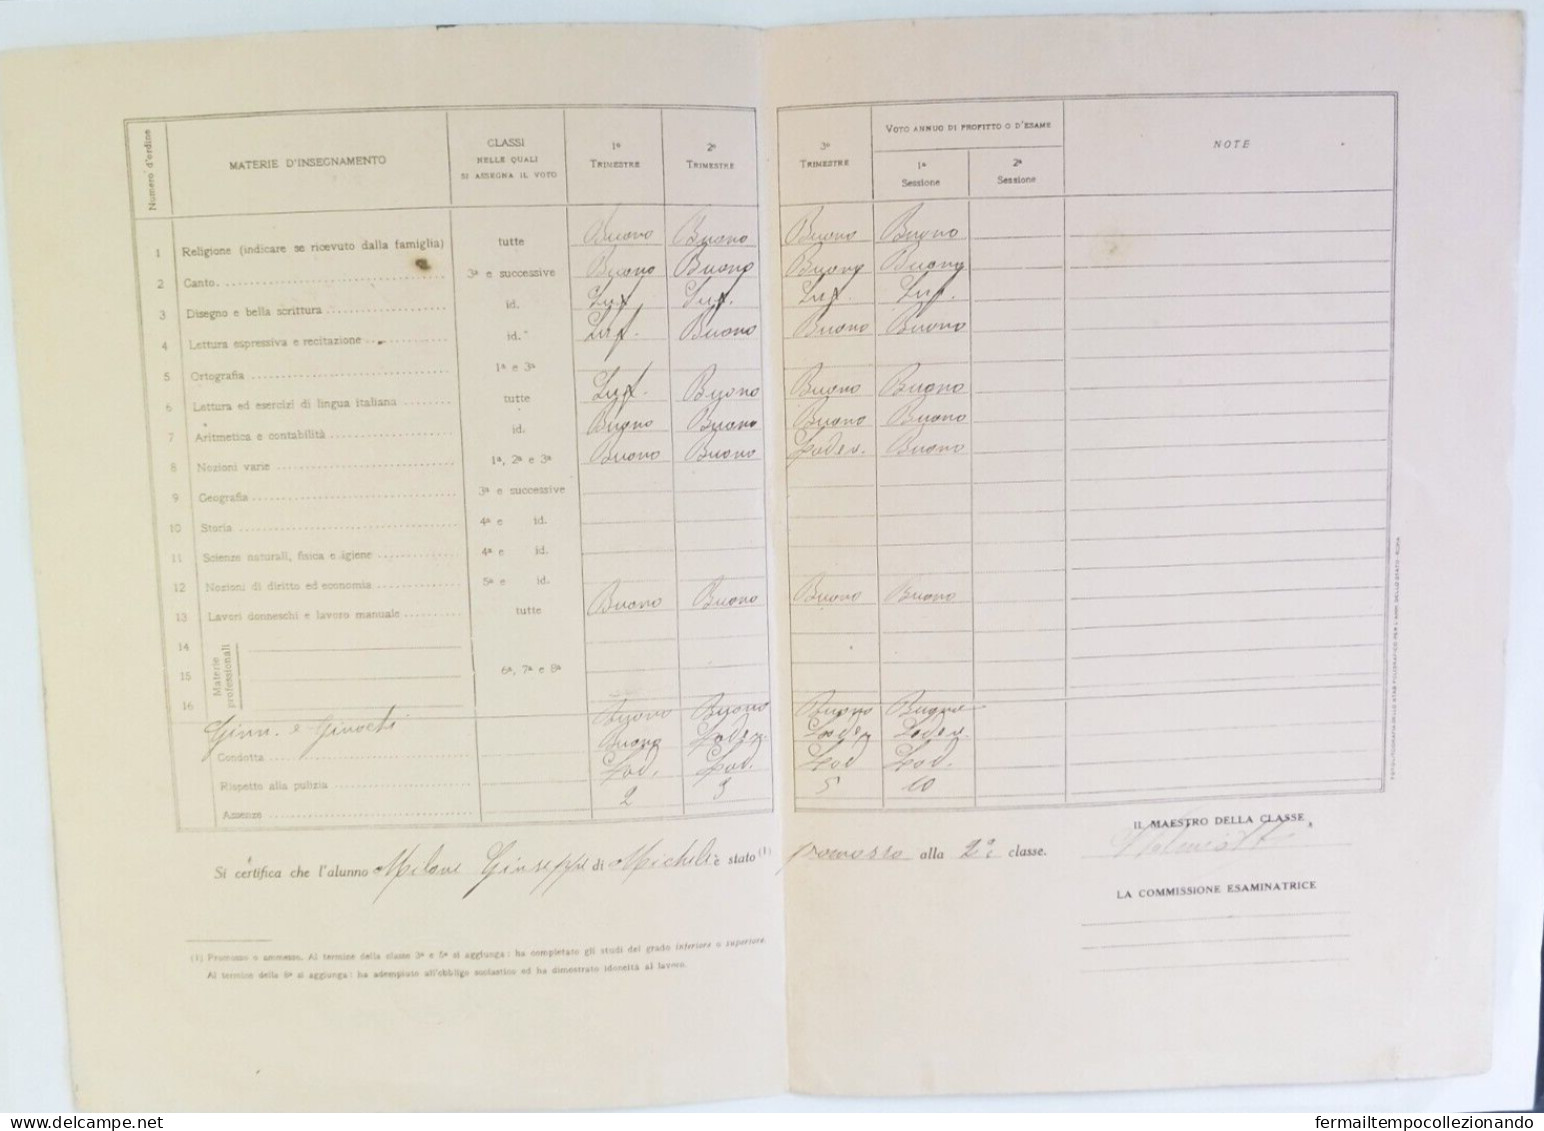 Numero d'ordine MATERIE D'INSEGNAMENTO CLASSI NELLE QUALI SI ASSEGNA IL VOTO 1º TRIMESTRE 2º TRIMESTRE 3º TRIMESTRE VOTO ANNUO DI PROFITTO O D'ESAME 1ª Sessione 2ª Sessione NOTE
1 Religione (indicare se ricevuto dalla famiglia) tutte Buono Buono Buono Buono
2 Canto 3ª e successive Buono Buono Buono Buono
3 Disegno e bella scrittura id. Suf. Suf. Suf. Suf.
4 Lettura espressiva e recitazione id. Suf. Buono Buono Buono
5 Ortografia 1ª e 3ª
6 Lettura ed esercizi di lingua italiana tutte Suf. Buono Buono Buono
7 Aritmetica e contabilità id. Buono Buono Buono Buono
8 Nozioni varie 1ª, 2ª e 3ª Buono Buono Lodev. Buono
9 Geografia 3ª e successive
10 Storia 4ª e id.
11 Scienze naturali, fisica e igiene 4ª e id.
12 Nozioni di diritto ed economia 5ª e id.
13 Lavori donneschi e lavoro manuale tutte Buono Buono Buono Buono
14
15 Materie professionali 6ª, 7ª e 8ª
16
Ginn. e Giuochi Buono Buono Buono Buono
Condotta Buono Lodev. Lodev Lodev.
Rispetto alla pulizia Lod. Lod. Lod Lod.
Assenze 2 3 5 10
Si certifica che l'alunno Milone Giuseppe di Michele è stato (1) promosso alla 2ª classe.
IL MAESTRO DELLA CLASSE
LA COMMISSIONE ESAMINATRICE
(1) Promosso o ammesso. Al termine della classe 3ª e 5ª si aggiunga: ha completato gli studi del grado inferiore o superiore.
Al termine della 8ª si aggiunga: ha adempiuto all'obbligo scolastico ed ha dimostrato idoneità al lavoro.
fermailtempocollezionando